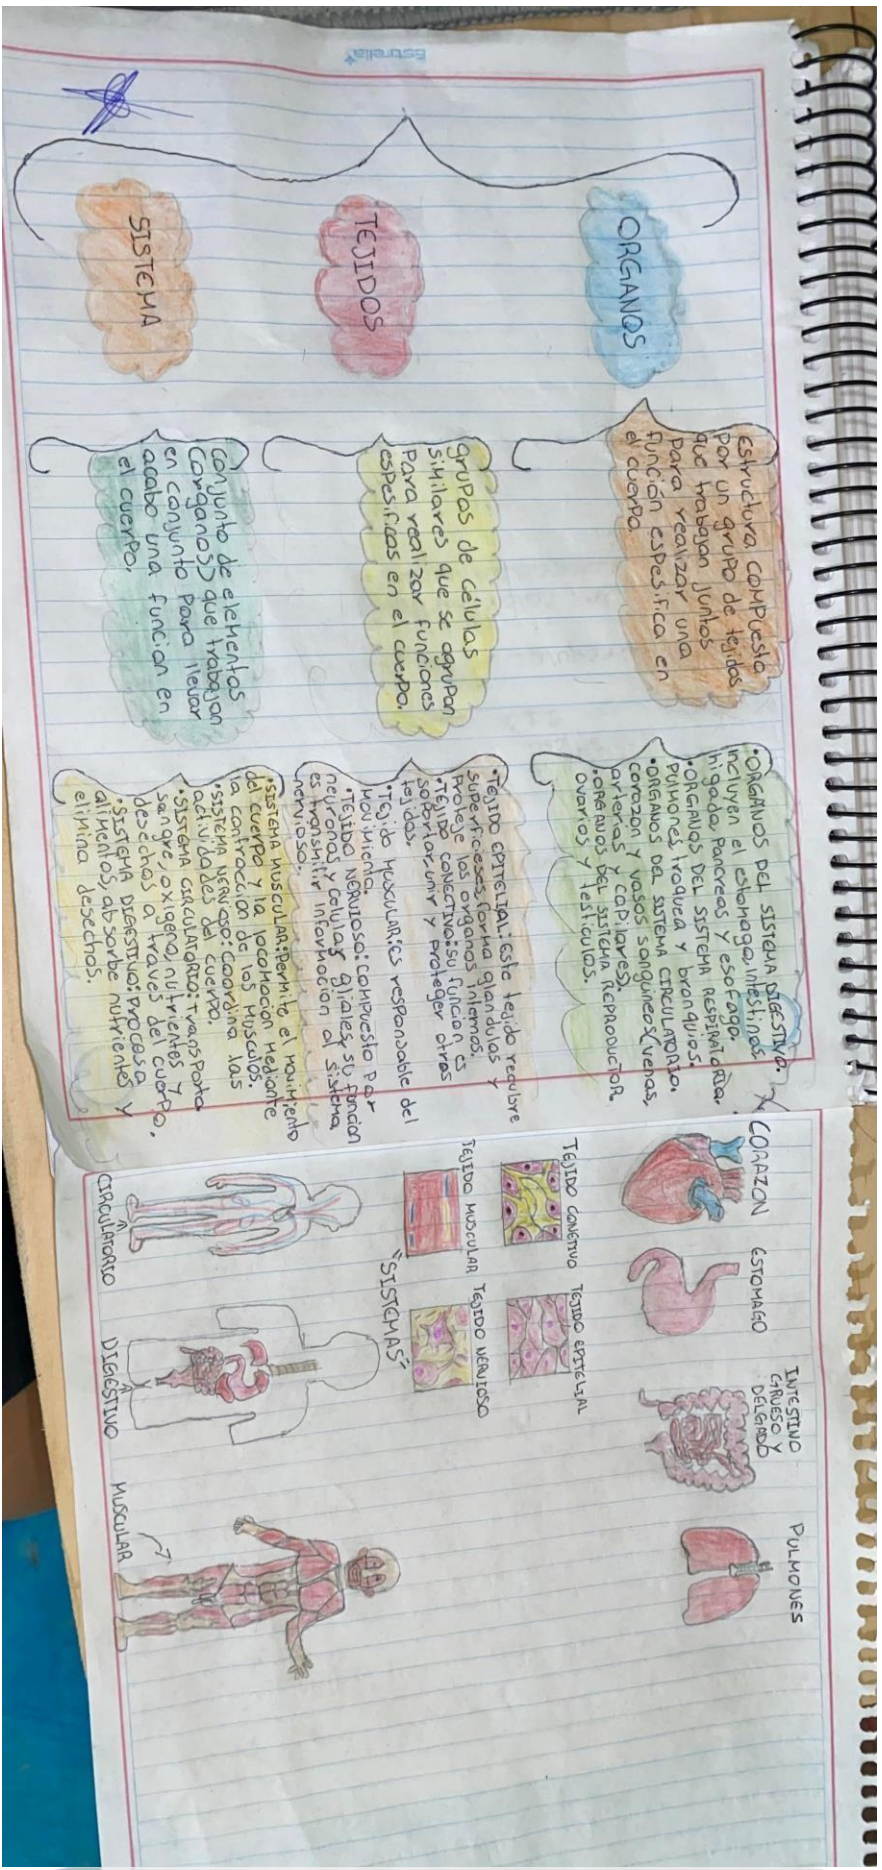 Estrella
ORGANOS
Estructura compuesta
por un grupo de tejidos
que trabajan juntos
para realizar una
función espesifica en
el cuerpo.
•ORGANOS DEL SISTEMA DIGESTIVO.
incluyen el estomago, intestinos
higado, Pancreas y esofago.
•ORGANOS DEL SISTEMA RESPIRATORIA.
Pulmones, troquea y bronquios.
•ORGANOS DEL SISTEMA CIRCULATORIO.
corazon y vasos sanguineos(venas,
arterias y capilares).
•ORGANOS DEL SISTEMA REPRODUCTOR
ovarios y testiculos.
TEJIDOS
grupos de células
similares que se agrupan
para realizar funciones
espesificas en el cuerpo.
•TEJIDO EPITELIAL: Este tejido recubre
superficieses, forma glandulas y
proteje los organos internos.
•TEJIDO CONECTIVO: su funcion es
soportar, unir y proteger otros
tejidos.
•Tejido MUSCULAR: es responsable del
Movimiento.
•TEJIDO NERVIOSO: COMPUESTO POR
neuronas y celulas gliales, su funcion
es transmitir informacion al sistema
nervioso.
SISTEMA
conjunto de elementos
(organos)) que trabajan
en conjunto para llevar
acabo una funcion en
el cuerpo.
•SISTEMA MUSCULAR: Permite el movimiento
del cuerpo y la locomocion mediante
la contracción de los musculos.
•SISTEMA NERVIOSO: Coordina las
actividades del cuerpo.
•SISTEMA CIRCULATORIO: Transporta
sangre, oxigeno, nutrientes y
desechos a traves del cuerpo.
•SISTEMA DIGESTIVO: Procesa
alimentos, absorbe nutrientes y
elimina desechos.
CORAZON
ESTOMAGO
INTESTINO
GRUESO Y
DELGADO
PULMONES
TEJIDO CONETIVO
TEJIDO EPITELIAL
TEJIDO MUSCULAR
TEJIDO NERVIOSO
"SISTEMAS"
CIRCULATORIO
DIGESTIVO
MUSCULAR